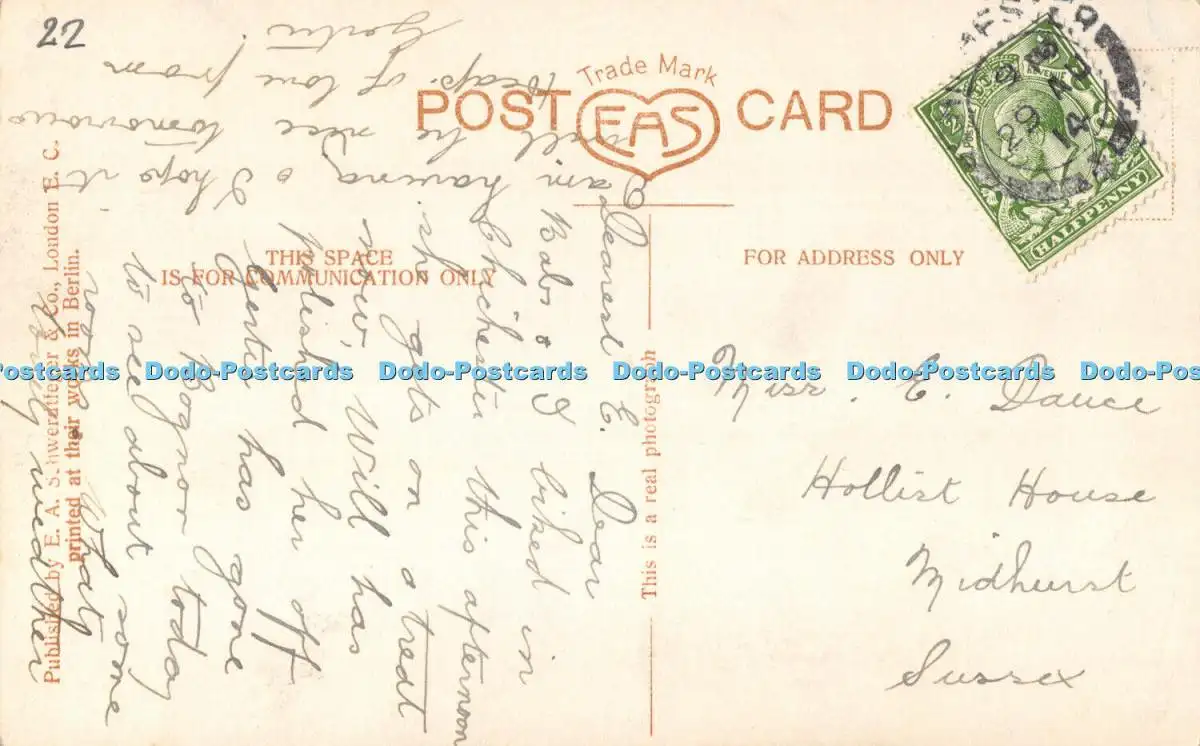 22
Trade Mark
POST EAS CARD
REVENUE
HALFPENNY
29 AP
14
THIS SPACE
IS FOR COMMUNICATION ONLY
FOR ADDRESS ONLY
This is a real photograph
Published by E. A. Schwerdtfeger & Co., London E. C.
printed at their works in Berlin.
Dearest E. Dear
Babs & I biked in
Chichester this afternoon
she gets on a treat
now. Will has
polished her off
Gertie has gone
to Bognor today
to see about some
rooms. What
lovely weather
am having & I hope it
will be nice tomorrow
Heaps of love from
Gertie
Miss. E. Dauce
Hollist House
Midhurst
Sussex
Dodo-Postcards Dodo-Postcards Dodo-Postcards Dodo-Postcards Dodo-Postcards Dodo-Postcards